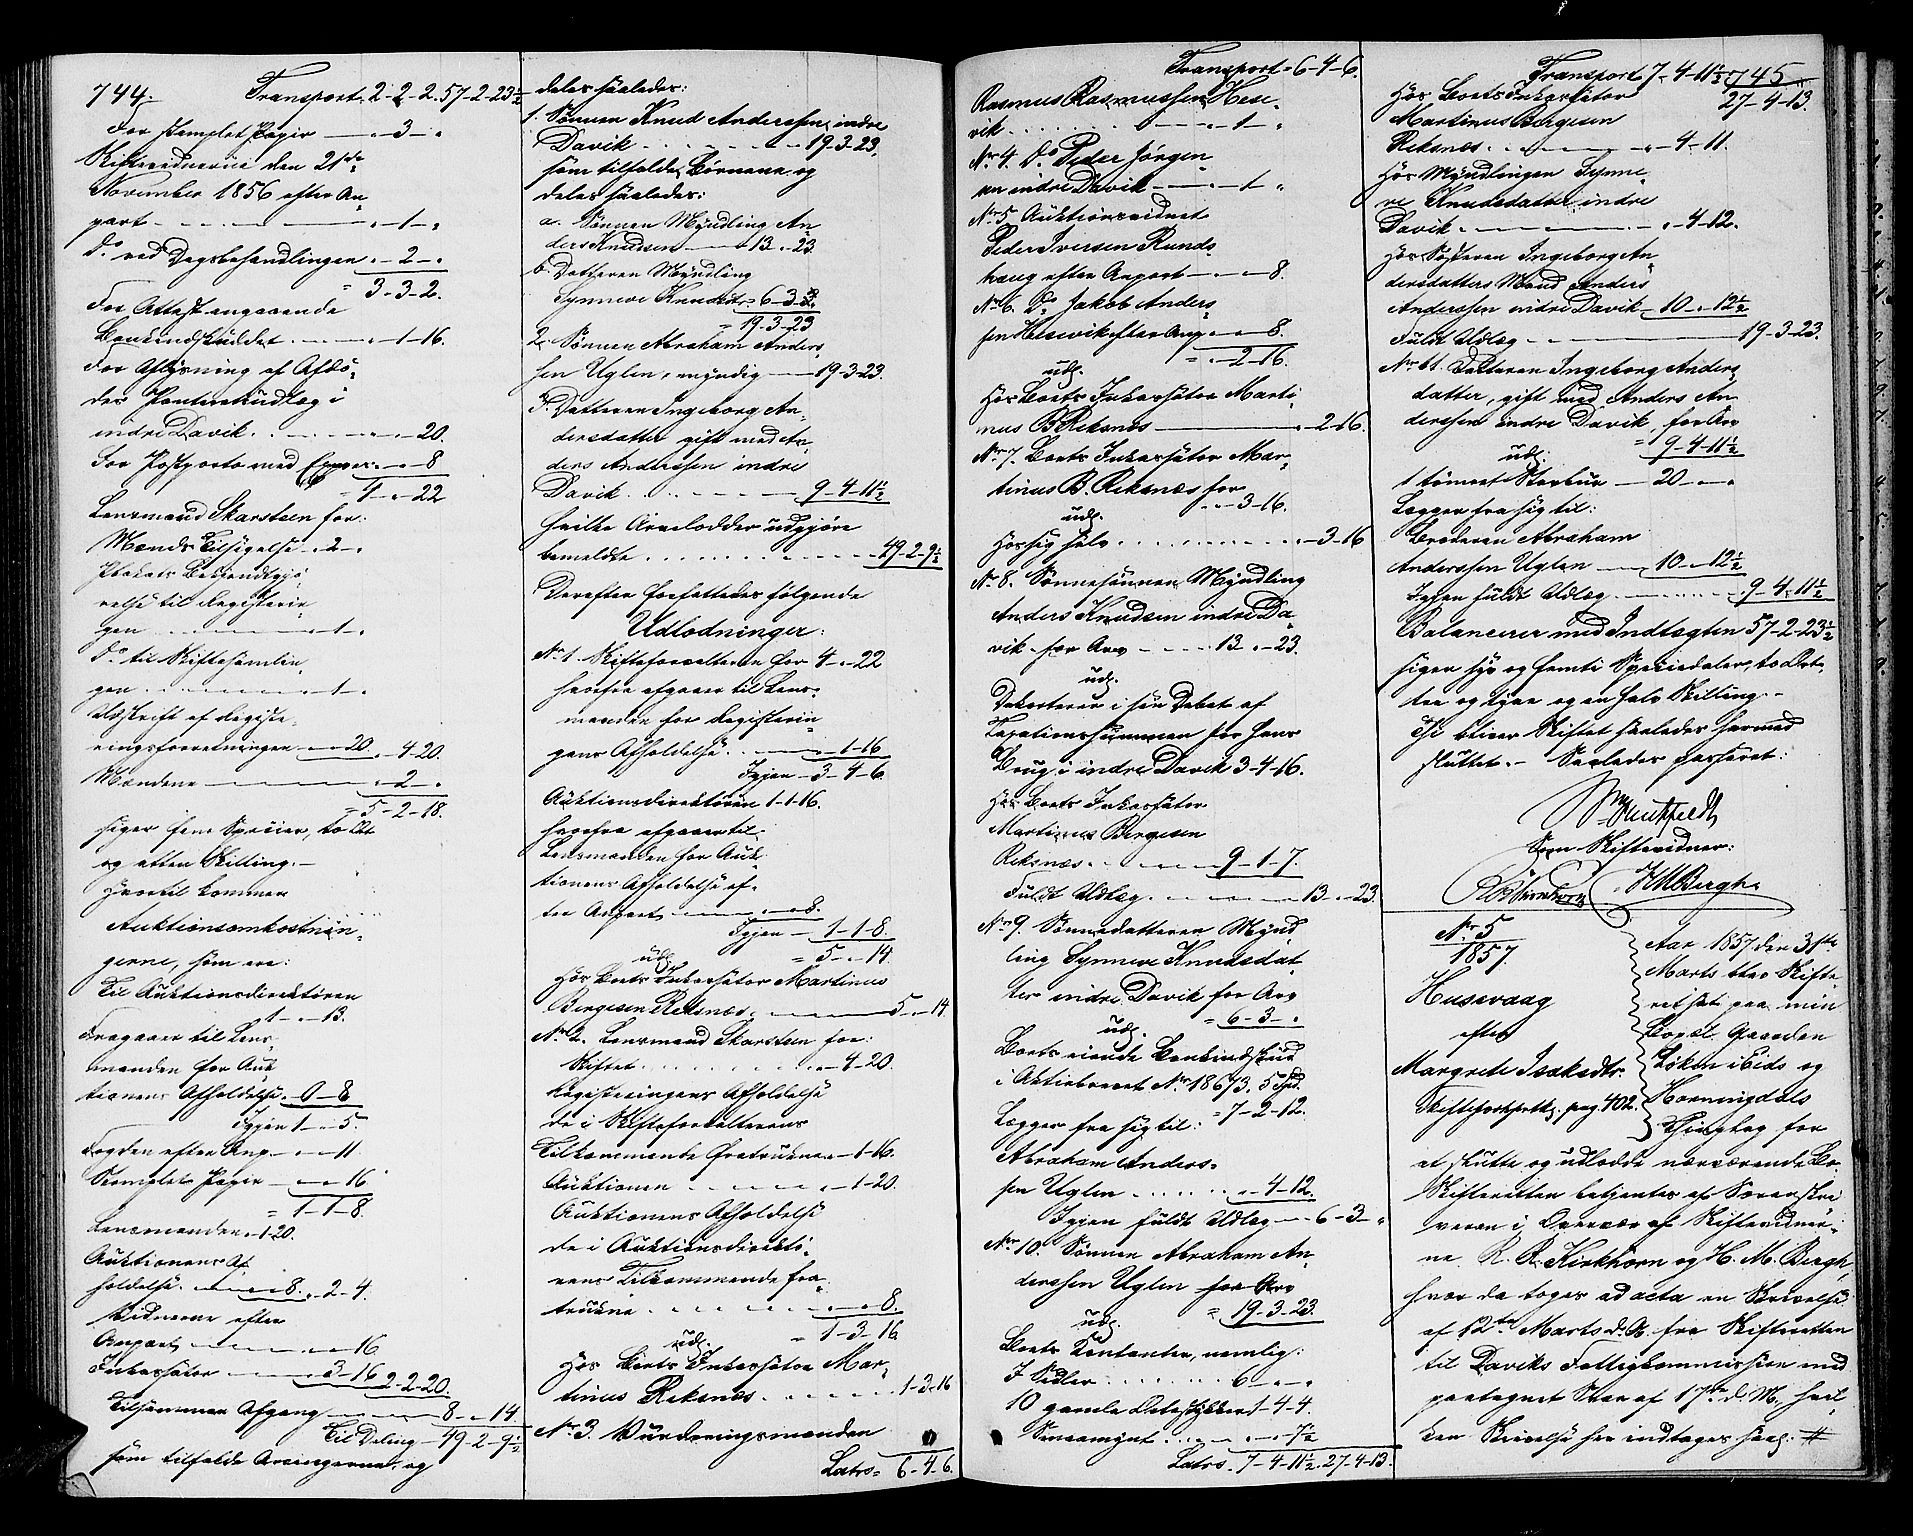 744.
Transport. 2-2-2. 57-2-23½
For stemplet Papir — „-3-„
Skiftevidnerne den 21de
November 1856 efter An-
part — „-1-„
Do ved Dagsbehandlingen „-2-„
= 3-3-2.
For Attest angaaende
Bankindskuddet „-1-16.
For Aflysning af Afdö-
des Panteretudlæg i
indre Davik „-„-20.
For Postporto med Expres. „-„-8
= 4-„-22
Lensmand Skarsteen for:
Mænds Tilsigelse „-2-„
Plakats Bekjendtgjö-
relse til Registerin-
gen „-1-„
Do til Skiftesamlin-
gen „-1-„
Udskrift af Registe-
ringsforretningen „-„-20. „-4-20.
Mændene „-2-„
= 5-2-18.
siger fem Species, to Ort
og atten Skilling.-
Hvortil kommer
Auktionsomkostnin-
gerne, som ere:
Til Auktionsdirektören
1-„-13.
Fragaaer til Lens-
manden for Auk-
tionens Afholdelse „-0-8
Igjen 1-„-5.
Fogden efter Anp. „-„-11.
Stemplet Papir „-„-16
= 1-1-8.
Lensmanden „-1-20.
Auktionens Af-
holdelse „-„-8. „-2-4.
Vidnerne efter
Anpart „-„-16
Inkassator „-3-16 2-2-20.
Tilsammen Afgang 8-„-14
Til Deling 49-2-9½
som tilfalde Arvingerne, og
deles saaledes:
1. Sönnen Knud Anderssen indre
Davik 19-3-23.
som tilfalde Börnene og
deles saaledes:
a. Sönnen Myndling An-
ders Knudsen 13-„-23
b. Datteren Myndling
Synneve Knudsdtr 6-3-„
= 19-3-23
2. Sönnen Abraham Anders-
sen Uglen, myndig 19-3-23.
3. Datteren Ingeborg An-
dersdatter gift med An-
ders Anderssen indre
Davik 9-4-11½
hvilke Arvelodder udgjöre
bemeldte 49-2-9½
Derefter forfattedes fölgende
Udlodninger:
No 1. Skifteforvalteren for 4-„-22
hvorfra afgaaer til Lens-
manden for Registerin-
gens Afholdelse „-1-16
Igjen 3-4-6
Auktionsdirektören 1-1-16.
hvorfra afgaaer til
Lensmanden for Auk-
tionens Afholdelse ef-
ter Anpart „-„-8.
Igjen 1-1-8.
= 5-„-14
udl.
Hos Boets Inkassator Martinus
Börgesen Reksnæs 5-„-14
No 2. Lensmand Skarsteen for:
Skiftet „-4-20.
Registeringens Afholdelse
de i Skifteforvalterens
Tilkommende fratrukne „-1-16.
Auktionen „-1-20.
Auktionens Afholdelse
de i Auktionsdirektö-
rens Tilkommende fra-
trukne „-„-8.
= 1-3-16
udl.
Hos Boets Inkassator Mar-
tinus Reksnæs 1-3-16
No 3. Vurderingsmanden
Latus = 6-4-6.
Transport 6-4-6.
Rasmus Rasmussen Hese-
vik „-1-„
No 4. Do Peder Jörgen-
sen indre Davik „-1-„
No 5. Auktionsvidnet
Peder Iversen Runds-
haug efter Anpart „-„-8.
No 6. Do Jakob Anders-
sen Hesevik efter Anp. „-„-8.
= „-2-16.
udl.
Hos Boets Inkassator Marti-
nus B Reksnæs „-2-16.
No 7. Boets Inkassator Mar-
tinus B. Reksnæs for
„-3-16.
udl.
Hos sig selv „-3-16
No 8. Sönnesönnen Myndling
Anders Knudsen indre Da-
vik for Arv 13-„-23.
udl.
Dekorterer i sin Debet af
Taxationssummen for hans
Brug i indre Davik 3-4-16.
Hos Boets Inkassator
Martinus Börgesen
Reksnæs 9-1-7.
Fuldt Udlæg 13-„-23.
No 9. Sönnedatteren Mynd-
ling Synneve Knudsdat-
ter indre Davik for Arv
= 6-3-„
udl.
Boets eiende Bankindskud
i Aktiebrevet No 18673. 5 Spd.
= 7-2-12.
Lægger fra sig til:
Abraham Anders-
sen Uglen „-4-12.
Igjen fuldt Udlæg 6-3-„
No 10. Sönnen Abraham An-
derssen Uglen for Arv
= 19-3-23.
udl.
Boets Kontanter, nemlig:
I Sedler 6-„-„
10 gamle Ortestykker 1-4-4.
Smaamynt „-„-7½
Latus 7-4-11½. 27-4-13.
Transport 7-4-11½ 745
27-4-13.
Hos Boets Inkassator
Martinus Börgesen
Reksnæs „-4-11.
Hos Myndlingen Synne-
ve Knudsdatter indre
Davik „-4-12.
Hos Söstren Ingeborg An-
dersdatters Mand Anders
Anderssen indre Davik 10-„-12½
Fuldt Udlæg 19-3-23.
No 11. Datteren Ingeborg Anders-
datter, gift med Anders An-
derssen indre Davik, for Arv
= 9-4-11½
udl.
1 tömret Storbur 20-„-„
Lægger fra sig til:
Broderen Abraham
Anderssen Uglen 10-„-12½
Igjen fuldt Udlæg 9-4-11½
Balancerer med Indtægten 57-2-23½
siger syv og femti Speciedaler, to Ort
tre og tyve og en halv Skilling.-
Thi bliver Skiftet saaledes hermed
sluttet.- Saaledes passeret:
Som Skiftevidner:
R R Kirkhorn H M Bergh.
No 5
1857
Husevaag
efter
Margrete Isaksdtr.
Skifteforhprtk. pag. 402.
Aar 1857 den 31te
Marts blev Skifte-
ret sat paa min
Bopæl Gaarden
Löken i Eids og
Hornindals
Thinglag for
at slutte og udlodde nærværende Bo.
Skifteretten betjentes af Sorenskri-
veren i Overvær af Skiftevidner-
ne R. R. Kirkhorn og H. M. Bergh,
hvor da toges ad acta en Skrivelse
af 12te Marts d. A. fra Skifteretten
til Daviks Fattigkommission med
paategnet Svar af 17de d. M. hvil-
ken Skrivelse her indtages saal. #